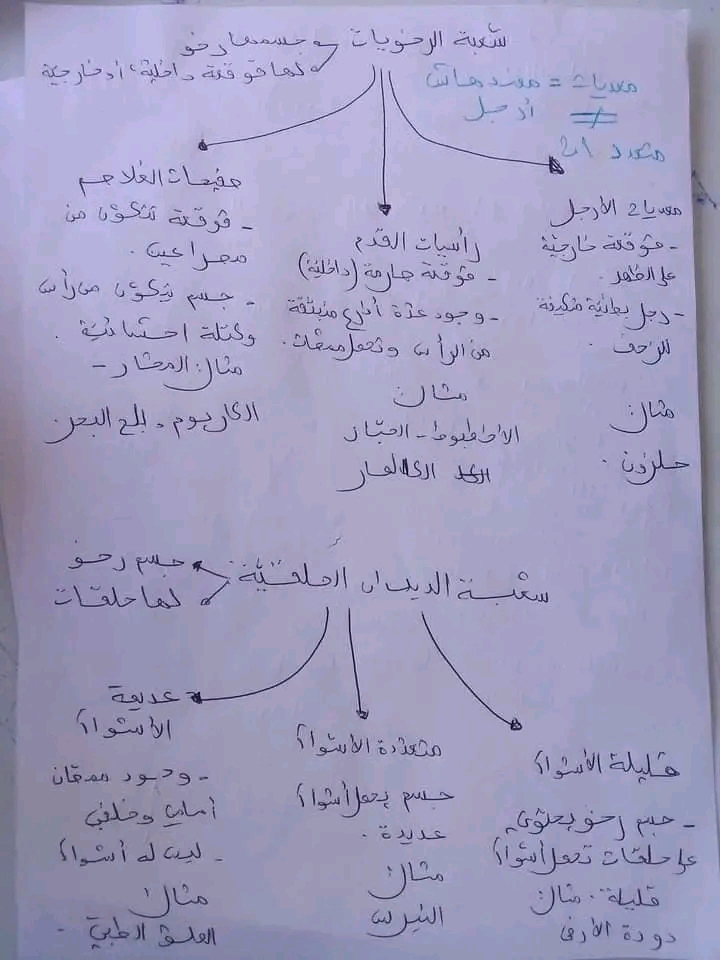 شعبة الرخويات
جسمها رخو
لها قوقعة داخلية، أو خارجية
معديات = معندهاش
أرجل ≠
متعدد ات
معديات الأرجل
- قوقعة خارجية
على الظهر.
- رجل بطنية متكيفة
للزحف.
مثال
حلزون.
رأسيات القدم
- قوقعة (داخلية)
- وجود عدة أذرع منبثقة
من الرأس وتحمل ممصّات.
مثال
الأخطبوط - الحبّار
الكالمار
صفيحات الغلاصم
- قوقعة تتكون من
مصراعين.
- جسم يتكون من رأس
وكتلة احشائية.
مثال: المحار -
بلح البحر.
شعبة الديدان الحلقيّة
جسم رخو
لها حلقات
قليلة الأشواك
- جسم رخو يحتوي
على حلقات تحمل أشواك
قليلة. مثال
دودة الأرض
متعدّدة الأشواك
جسم يحمل أشواك
عديدة.
مثال
النيرس
عديمة
الأشواك
- وجود ممصان
أمامي وخلفي
- ليس له أشواك
مثال
العلق الطبي.